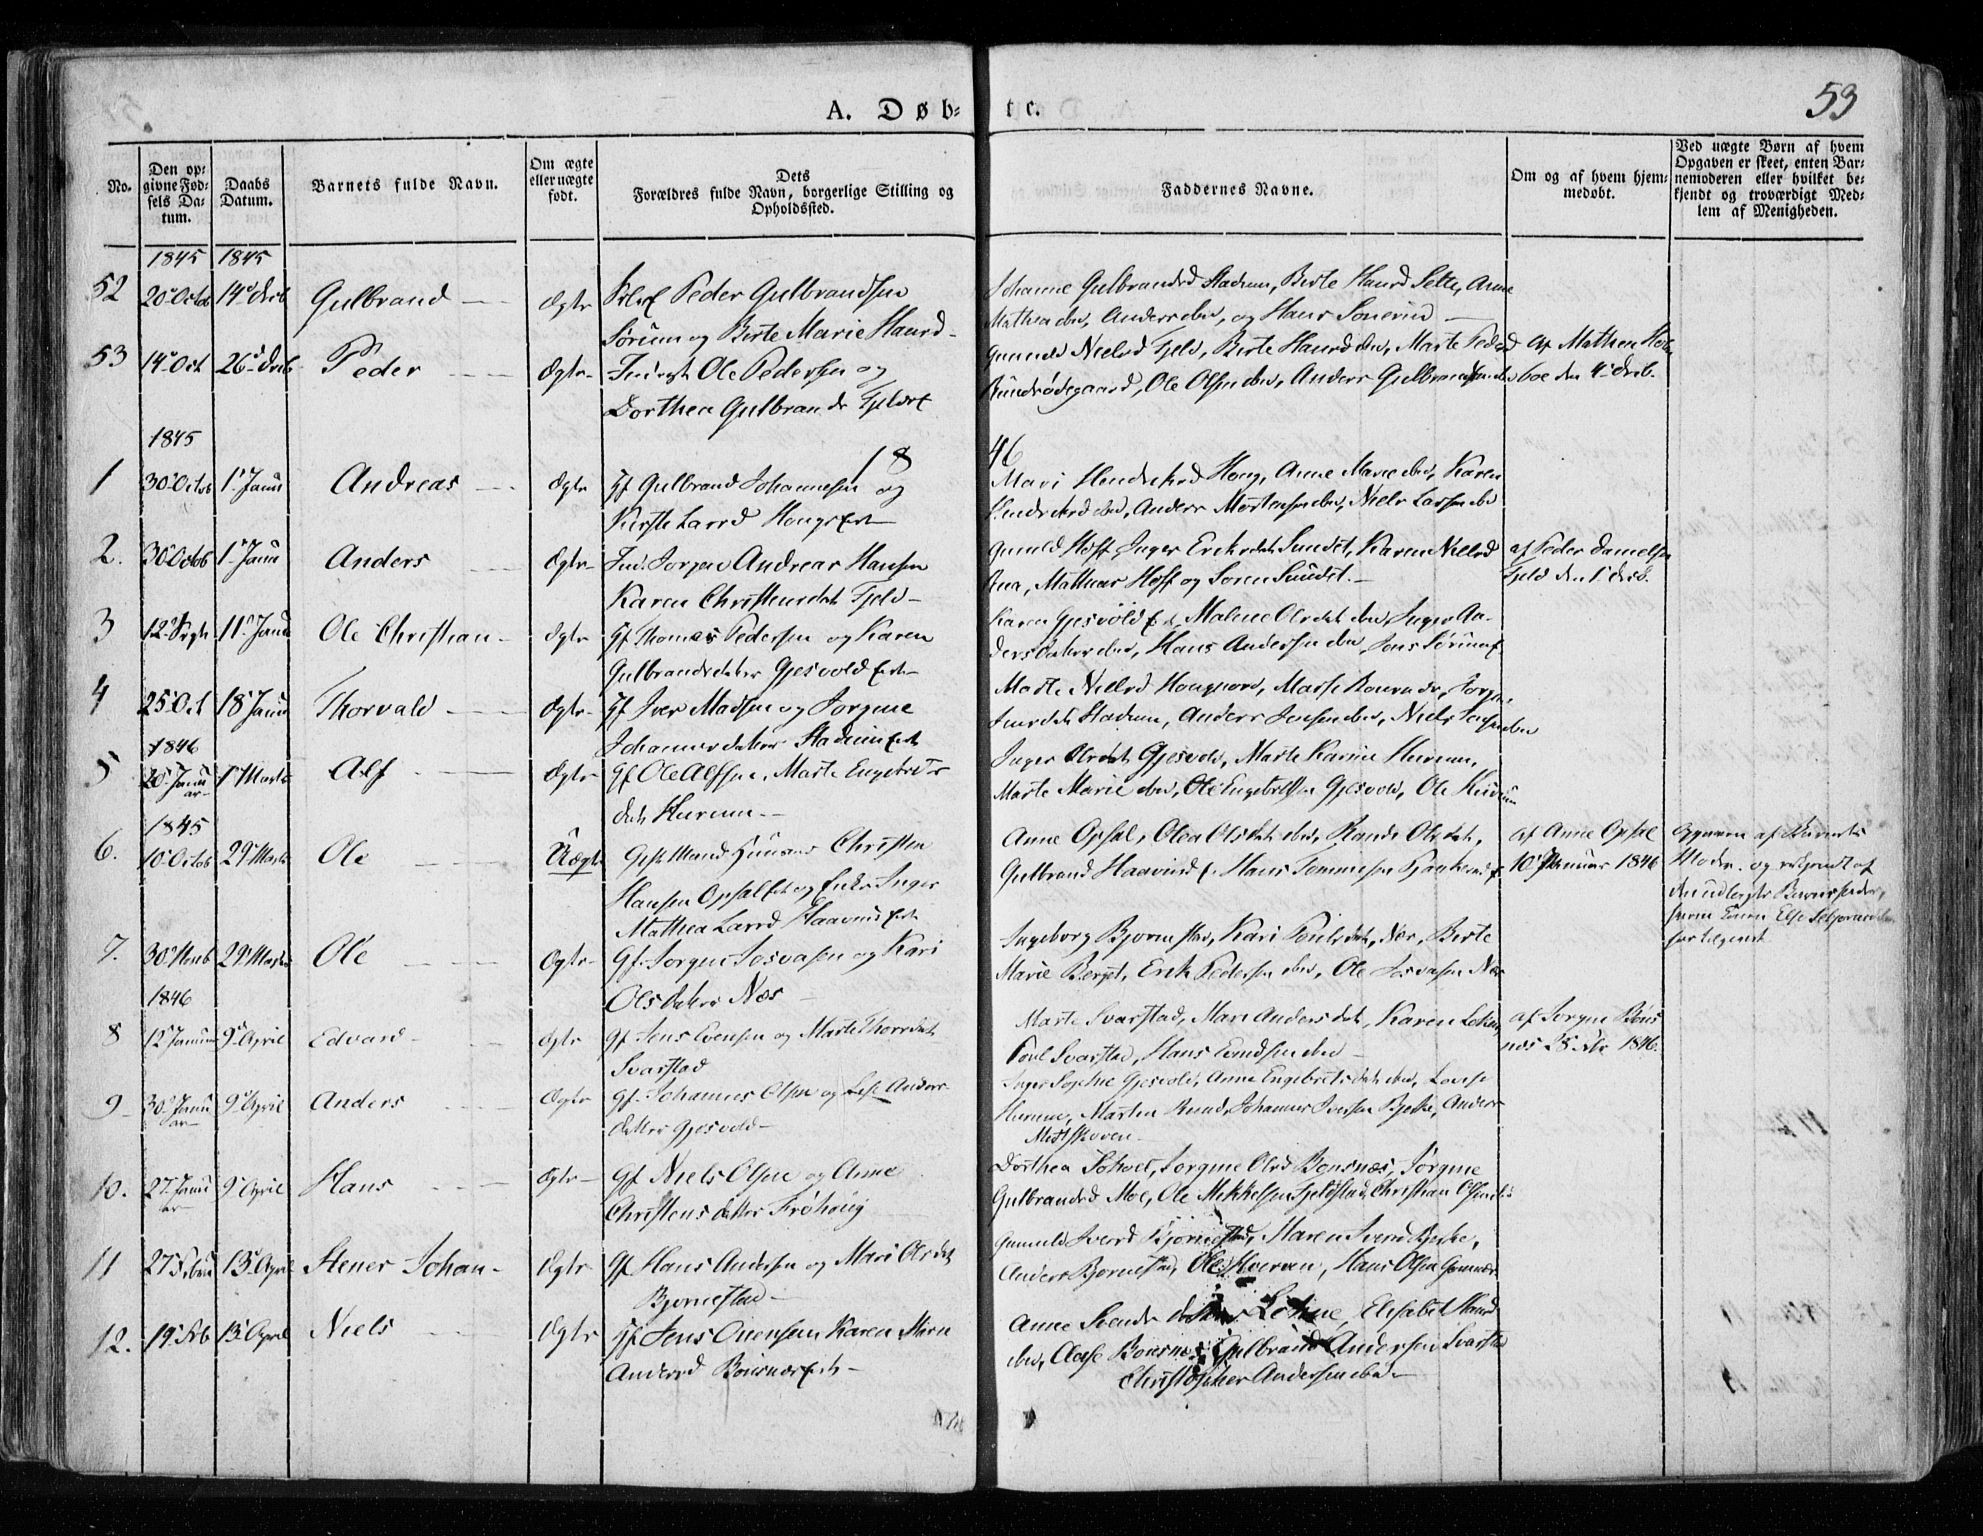 A. Døb-
te.
53
No.
Den op-
givne Fød-
sels Da-
tum.
Daabs
Datum.
Barnets fulde Navn.
Om ægte
eller uægte
født.
Dets
Forældres fulde Navn, borgerlige Stilling og
Opholdssted.
Faddernes Navne.
Om og af hvem hjem-
medøbt.
Ved uægte Børn af hvem
Opgaven er skeet, enten Bar-
nemoderen eller hvilket be-
kjendt og troværdigt Med-
lem af Menigheden.
1845 1845
52 20 Octob 14 Decb Gulbrand Ægte Peder Gulbrandsen
Sørum og Birte Marie Hansd
Johanne Gulbrandsd Stadum, Birte Hansd Sette, Anne
Mathea ibid, Anders ibid, og Hans Sonerud
53 14 Oct 26 Decb Peder Ægte Ole Pedersen og
Dorthea Gulbrandsd
Gunnild Nielsd Fjeld, Birte Hansd ibid, Marte Pedersd
Ole Olsen ibid, Anders Gulbrandsen ibid
af Mathea
den 4 Decb.
1845
18
46
1 30 Octob 1 Janu Andreas Ægte Gf Gulbrand Johannesen og
Kirste Larsd
Mari Hendriksd Houg, Anne Marie ibid, Karen
Hendriksd ibid, Anders Mortensen ibid, Niels Larsen ibid
2. 30 Octob 1 Janu Anders Ægte Ind. Jørgen Andreas Hansen
Karen Christensdat Fjeld
Gunild Hoff, Inger Eriksdat Sundet, Karen Nielsd
Mathias Hoff og Søren Sundet.
af Peder Danielsen
Fjeld den 1 Decb.
3 12 Sept 11 Janu Ole Christian Ægte Gf Thomas Pedersen og Karen
Gulbrandsdatter Gjesvold
Karen Gjesvold, Malene Olsdat ibid, Inger An-
dersdatter ibid, Hans Andersen ibid, Jens Sørum
4 25 Oct 18 Janu Thorvald Ægte Gf Iver Madsen og Jørgine
Johannesdatter Stadum
Marte Nielsd
Stadum, Anders Jensen ibid, Niels Jensen ibid
1846
5 28 Janu
ar
1 Marts Alf Ægte Gf Ole Alfsen, Marte Engebrets
dat Hurum
Inger Olsdat Gjesvold, Marte Karine Hurum,
Marte Marie ibid, Ole Engebretsen Gjesvold, Ole Hurum
1845
6. 10 Octob 29 Marts Ole Uægte Gift Mand Huusm Christen
Hansen Opsal og Enke Inger
Mathea Larsd
Anne Opsal, Olea Olsdat ibid, Randi Olsdat,
Gulbrand Haavind, Hans Tommesen
af Anne Opsal
10 Januar 1846
Opgaven af Barnets
Moder og vedkjendt af
den udlagte Barnefader,
7. 30 Novb 29 Marts Ole Ægte Gf. Jørgen Josvasen og Kari
Olsdatter Næs
Ingeborg Bjørnestad, Kari Poulsdat, Næs, Birte
Marie Berget, Erik Pedersen ibid, Ole Josvasen Næs
1846
8 12 Januar 9 April Edvard Ægte Gf Jens Evensen og Marte Thorsdat
Svarstad
Marte Svarstad, Mari Andersdat, Karen
Poul Svarstad, Hans ibid
af Jørgen Bøns
næs 1846.
9 30 Janu
ar
9 April Anders Ægte Gf. Johannes Olsen og Lise Anders-
datter Gjesvold
Inger Sophie Gjesvold, Anne Engebretsdat ibid, Lovise
Hurum, Morten Rud, Johannes Iversen Bjerke, Anders
10. 27 Janu
ar
9 April Hans Ægte Gf Niels Olsen og Anne
Christensdatter Frøhoug
Dorthea Solvet, Jørgine Olsd Bønsnæs, Jørgine
Gulbrandsd Moe, Ole Mikkelsen Fjeldstad, Christian Olsen
11 27 Febru 13 April Stener Johan Ægte Gf Hans Andersen og Mari Olsdat
Bjørnestad
Gunnild Iversd Bjørnestad, Maren Iversd Bjerke,
Anders Bjørnestad, Ole Hverven, Hans Olsen
12. 19 Feb 13 April Niels Ægte Gf Jens Karen Mina
Andersd Bønsnæs
Anne Elisabet Hansd
ibid, Bønsnæs, Gulbrand Andersen Svarstad
Christopher Andersen ibid